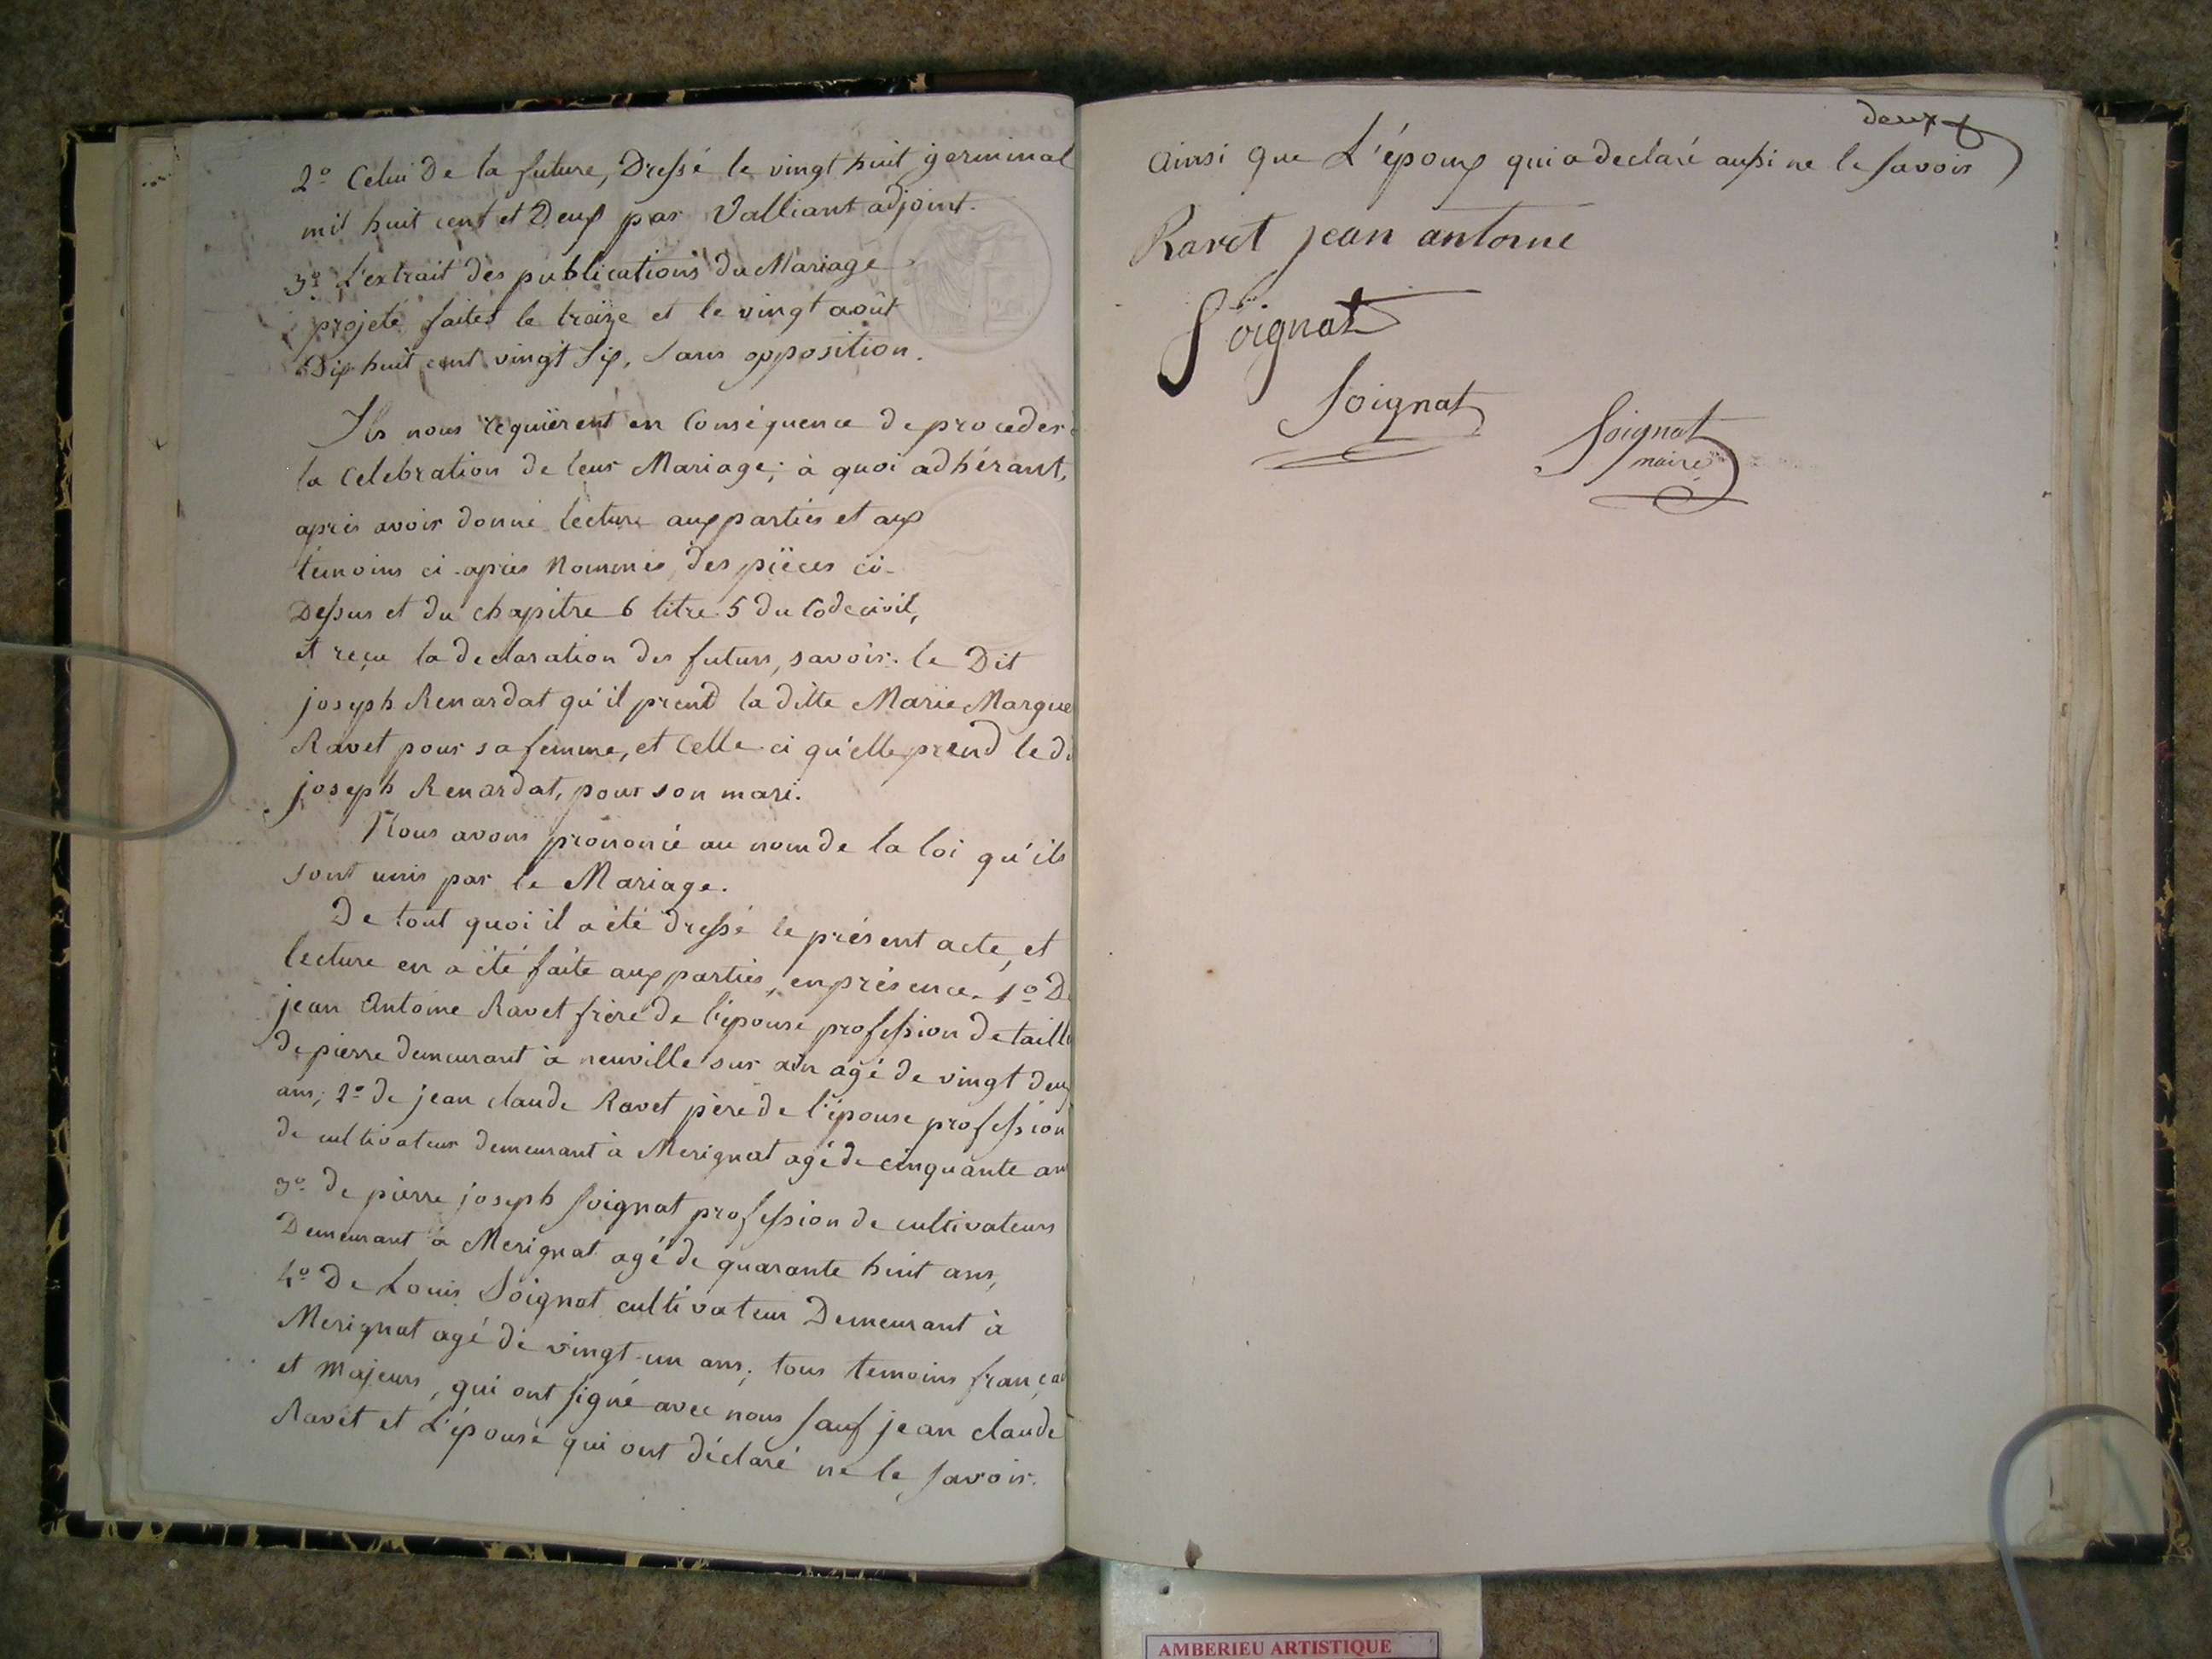 2º Celui de la future, Dressé le vingt huit germinal
mil huit cent et Deux par Valliant adjoint.
3º L'extrait des publications du Mariage
projeté faites le treize et le vingt août
Dix huit cent vingt six, sans opposition.
Ils nous requièrent en Conséquence de proceder
la Celebration de leur Mariage; à quoi adhérant,
après avoir donné lecture aux parties et aux
temoins ci-après Nommés, des pièces ci-
Dessus et du chapitre 6 titre 5 du Code civil,
et reçu la declaration des futurs, savoir. le Dit
joseph Renardat qu'il prend la ditte Marie Margue
Ravet pour sa femme, et Celle-ci qu'elle prend le di
joseph Renardat, pour son mari.
Nous avons prononcé au nom de la loi qu'ils
sont unis par le Mariage.
De tout quoi il a été dressé le présent acte, et
lecture en a été faite aux parties, en présence. 1º De
jean Antoine Ravet frère de l'épouse profession de taille
de pierre demeurant à neuville sur ain agé de vingt deux
ans; 2º de jean claude Ravet père de l'épouse profession
de cultivateur demeurant à Merignat agé de cinquante ans
3º de pierre joseph Soignat profession de cultivateurs
Demeurant à Merignat agé de quarante huit ans,
4º De Louis Soignat cultivateur Demeurant à
Merignat agé de vingt-un ans; tous temoins françai
et Majeurs, qui ont signé avec nous sauf jean claude
Ravet et L'épouse qui ont déclaré ne le savoir.
deux
ainsi que L'époux qui a declaré aussi ne le savoir
Ravet jean antoine
Soignat
Soignat
Soignat
maire
AMBERIEU ARTISTIQUE